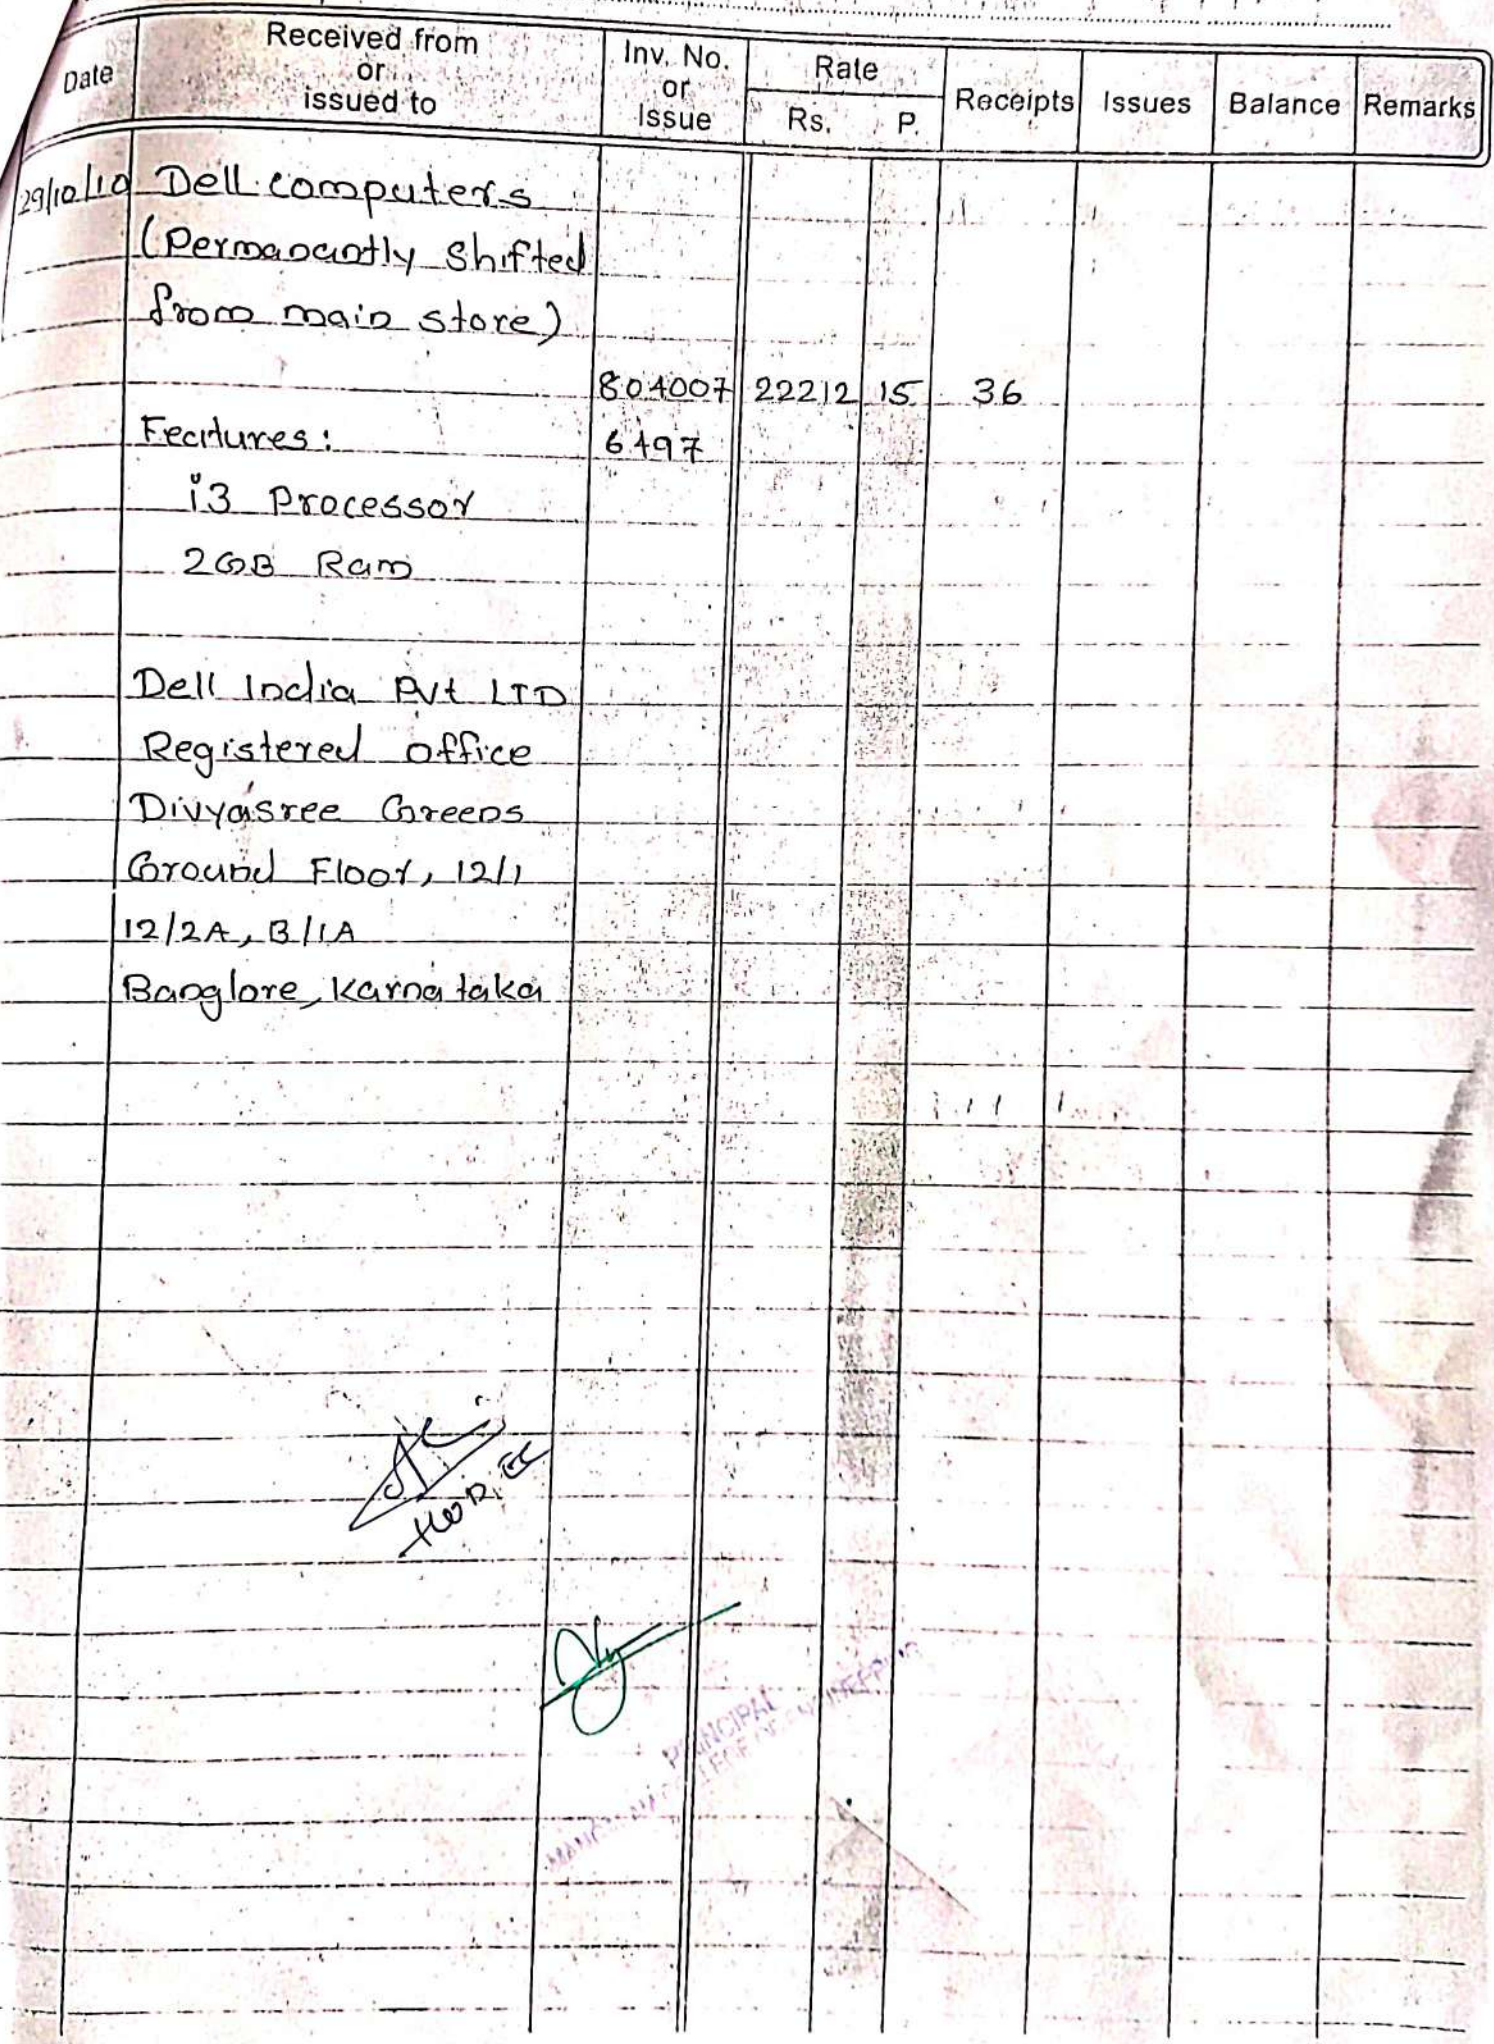 Date Received from or issued to Inv. No. or Issue Rate Rs. P. Receipts Issues Balance Remarks
29/10/10 Dell computers
(Permanantly Shifted
from main store)
804007 22212 15 36
Features: 6497
i3 Processor
2GB Ram
Dell India Pvt LTD
Registered office
Divyasree Greens
Ground Floor, 12/1
12/2A, B/1A
Banglore, Karnataka
PRINCIPAL